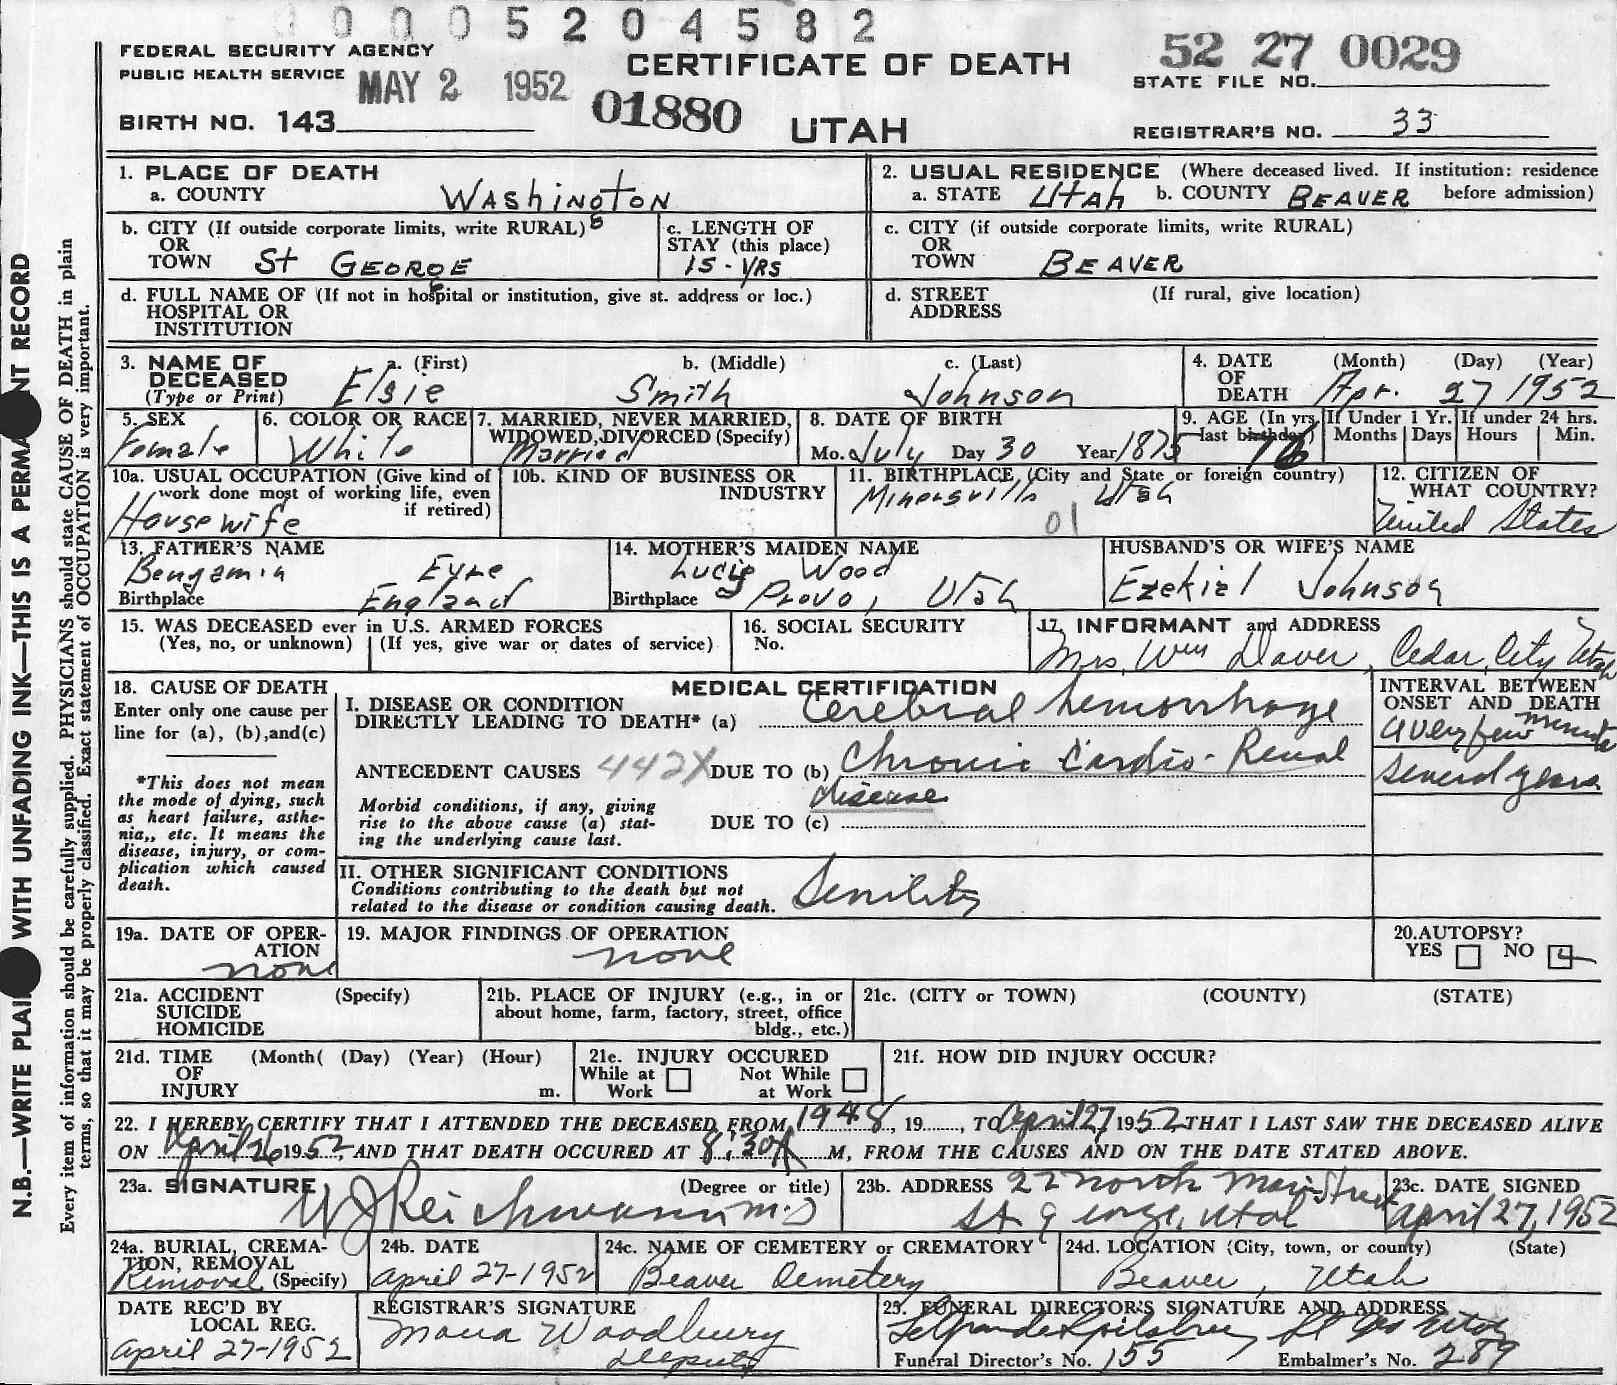 0005204582
FEDERAL SECURITY AGENCY
PUBLIC HEALTH SERVICE
MAY 2 1952
CERTIFICATE OF DEATH
52 27 0029
STATE FILE NO.
BIRTH NO. 143
01880
UTAH
REGISTRAR'S NO. 33
N.B.—WRITE PLAI WITH UNFADING INK—THIS IS A PERMA NT RECORD
Every item of information should be carefully supplied. PHYSICIANS should state CAUSE OF DEATH in plain
terms, so that it may be properly classified. Exact statement of OCCUPATION is very important.
1. PLACE OF DEATH
a. COUNTY Washington
2. USUAL RESIDENCE (Where deceased lived. If institution: residence
a. STATE Utah b. COUNTY BEAVER before admission)
b. CITY (If outside corporate limits, write RURAL)
OR
TOWN St GEORGE
c. LENGTH OF
STAY (this place)
15-YRS
c. CITY (if outside corporate limits, write RURAL)
OR
TOWN BEAVER
d. FULL NAME OF (If not in hospital or institution, give st. address or loc.)
HOSPITAL OR
INSTITUTION
d. STREET (If rural, give location)
ADDRESS
3. NAME OF a. (First) b. (Middle) c. (Last)
DECEASED Elsie Smith Johnson
(Type or Print)
4. DATE (Month) (Day) (Year)
OF
DEATH Apr. 27 1952
5. SEX
Female
6. COLOR OR RACE
White
7. MARRIED, NEVER MARRIED,
WIDOWED, DIVORCED (Specify)
Married
8. DATE OF BIRTH
Mo. July Day 30 Year 1875
9. AGE (In yrs.
last birthday) 76
If Under 1 Yr.
Months Days
If under 24 hrs.
Hours Min.
10a. USUAL OCCUPATION (Give kind of
work done most of working life, even
if retired)
Housewife
10b. KIND OF BUSINESS OR
INDUSTRY
11. BIRTHPLACE (City and State or foreign country)
Minersville Utah
01
12. CITIZEN OF
WHAT COUNTRY?
United States
13. FATHER'S NAME
Benjamin Eyre
Birthplace England
14. MOTHER'S MAIDEN NAME
Lucy Wood
Birthplace Provo, Utah
HUSBAND'S OR WIFE'S NAME
Ezekiel Johnson
15. WAS DECEASED ever in U.S. ARMED FORCES
(Yes, no, or unknown) (If yes, give war or dates of service)
16. SOCIAL SECURITY
No.
17. INFORMANT and ADDRESS
Mrs. Wm Dover, Cedar City Utah
18. CAUSE OF DEATH
Enter only one cause per
line for (a), (b), and (c)
*This does not mean
the mode of dying, such
as heart failure, asthe-
nia,, etc. It means the
disease, injury, or com-
plication which caused
death.
MEDICAL CERTIFICATION
I. DISEASE OR CONDITION
DIRECTLY LEADING TO DEATH* (a) Cerebral hemorrhage
ANTECEDENT CAUSES 442X DUE TO (b) Chronic Cardio-Renal
disease
Morbid conditions, if any, giving
rise to the above cause (a) stat-
ing the underlying cause last.
DUE TO (c)
INTERVAL BETWEEN
ONSET AND DEATH
a very few minutes
Several years
II. OTHER SIGNIFICANT CONDITIONS
Conditions contributing to the death but not
related to the disease or condition causing death.
Senility
19a. DATE OF OPER-
ATION
none
19. MAJOR FINDINGS OF OPERATION
none
20. AUTOPSY?
YES NO
21a. ACCIDENT (Specify)
SUICIDE
HOMICIDE
21b. PLACE OF INJURY (e.g., in or
about home, farm, factory, street, office
bldg., etc.)
21c. (CITY or TOWN) (COUNTY) (STATE)
21d. TIME (Month( (Day) (Year) (Hour)
OF
INJURY m.
21e. INJURY OCCURED
While at Not While
Work at Work
21f. HOW DID INJURY OCCUR?
22. I HEREBY CERTIFY THAT I ATTENDED THE DECEASED FROM 1948, 19......, TO April 27, 1952 THAT I LAST SAW THE DECEASED ALIVE
ON April 26 1952, AND THAT DEATH OCCURED AT 8:30A M, FROM THE CAUSES AND ON THE DATE STATED ABOVE.
23a. SIGNATURE (Degree or title)
W J Reichmann M.D
23b. ADDRESS 22 North Main Street
St George, Utah
23c. DATE SIGNED
April 27, 1952
24a. BURIAL, CREMA-
TION, REMOVAL
Removal (Specify)
24b. DATE
April 27-1952
24c. NAME OF CEMETERY or CREMATORY
Beaver Cemetery
24d. LOCATION (City, town, or county) (State)
Beaver, Utah
DATE REC'D BY
LOCAL REG.
April 27-1952
REGISTRAR'S SIGNATURE
Mona Woodbury
Deputy
25. FUNERAL DIRECTOR'S SIGNATURE AND ADDRESS
St Geo Utah
Funeral Director's No. 155 Embalmer's No. 289